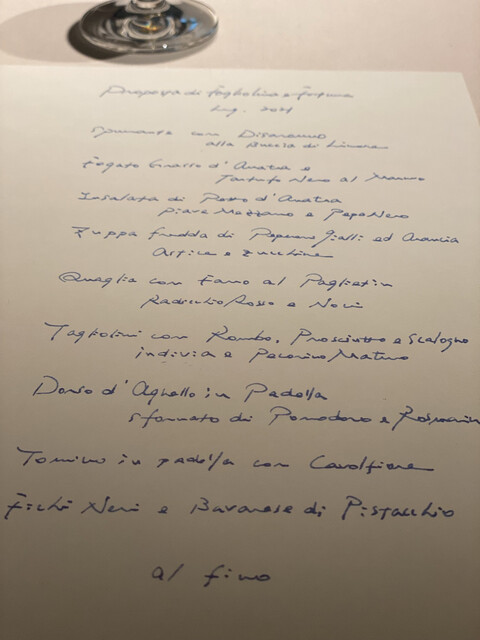 Proposta di Fagiolino e Fortuna
Lug. 2021
Spumante con Disaronno
alla Buccia di Limone
Fegato Grasso d'Anatra e
Tartufo Nero al Marmo
Insalata di Petto d'Anatra
Piave Mezzano e Pepe Nero
Zuppa fredda di Peperoni Gialli ed Arancia
Astice e Zucchine
Quaglia con Farro al
Radicchio Rosso e Noci
Tagliolini con Rombo, Prosciutto e Scalogno
indivia e Pecorino Maturo
Dorso d'Agnello in Padella
sformato di Pomodoro e Rosmarin
Tomino in padella con Cavolfiore
Fichi Neri e Bavarese di Pistacchio
al fino